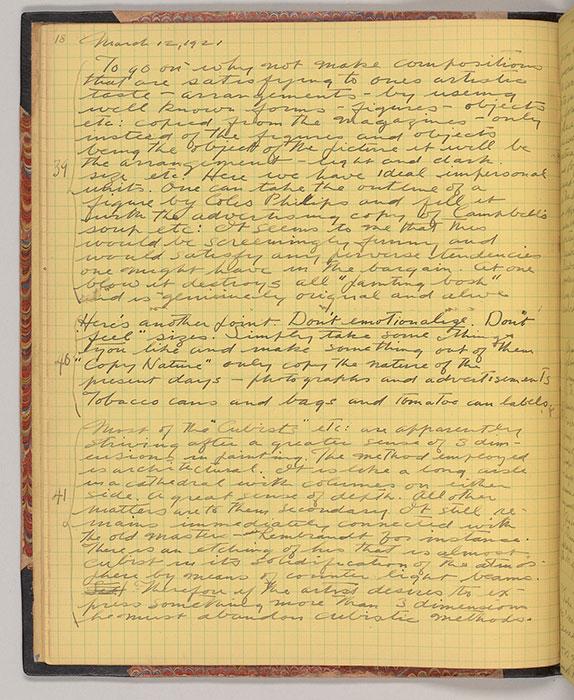 18 March 12, 1921
To go on why not make compositions
that are satisfying to ones artistic
taste - arrangements - by useing
well known forms - figures - objects
etc: copied from the magazines - only
instead of the figures and objects
being the object of the picture it will be
39 the arrangement - light and dark.
size etc. Here we have ideal impersonal
units. One can take the outline of a
figure by Coles Phillips and fill it
with the advertising copy of Campbell's
soup etc: It seems to me that this
would be screemingly funny and
would satisfy any perverse tendencies
one might have in the bargain. At one
blow it destroys all "painting bosh"
and is genuinely original and alive
Here's another point - Don't emotionalize. Don't
"feel" sizes. Simply take some things
you like and make something out of them
40 "Copy Nature" only copy the nature of the
present days - photographs and advertisements
Tobacco cans and bags and tomatoe can labels.
Most of the "Cubists" etc: are apparently
striving after a greater sense of 3 dim-
ensions in painting. The method employed
is architectural. It is like a long aisle
in a cathedral with columns on either
41 side. A great sense of depth. All other
matters are to them secondary. It still re-
mains immediately connected with
the old masters - Rembrandt for instance.
There is an etching of his that is almost
cubist in its solidification of the atmos-
phere by means of counter light beams.
Therefore if the artist desires to ex-
press something more than 3 dimensions
he must abandon cubistic methods.